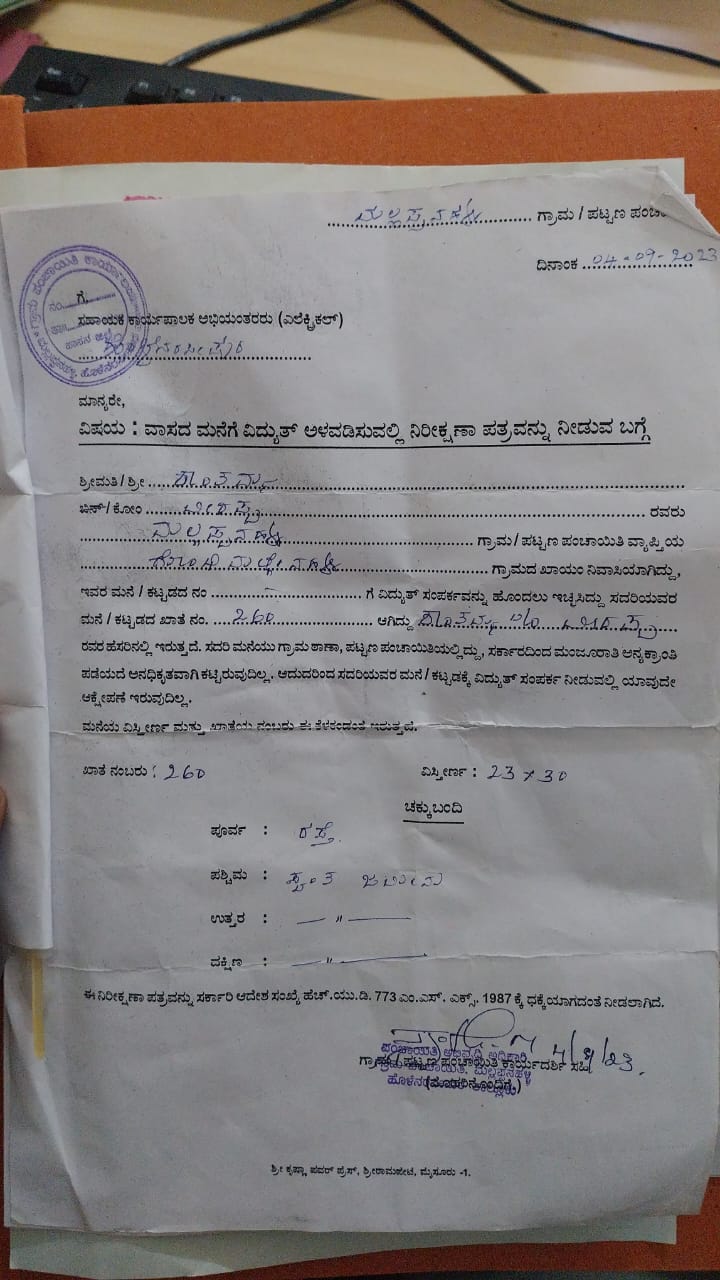 ಮಲ್ಲಪ್ಪನಹಳ್ಳಿ ಗ್ರಾಮ / ಪಟ್ಟಣ ಪಂಚಾ
ದಿನಾಂಕ 04-09-2023
ಗ್ರಾಮ ಪಂಚಾಯಿತಿ ಕಾರ್ಯಾ
ಗೆ,
ಸಹಾಯಕ ಕಾರ್ಯಪಾಲಕ ಅಭಿಯಂತರರು (ಎಲೆಕ್ಟ್ರಿಕಲ್)
ಮಾನ್ಯರೇ,
ವಿಷಯ : ವಾಸದ ಮನೆಗೆ ವಿದ್ಯುತ್ ಅಳವಡಿಸುವಲ್ಲಿ ನಿರೀಕ್ಷಣಾ ಪತ್ರವನ್ನು ನೀಡುವ ಬಗ್ಗೆ
ಶ್ರೀಮತಿ / ಶ್ರೀ
ಬಿನ್ / ಕೋಂ ರವರು
ಮಲ್ಲಪ್ಪನಹಳ್ಳಿ ಗ್ರಾಮ / ಪಟ್ಟಣ ಪಂಚಾಯಿತಿ ವ್ಯಾಪ್ತಿಯ
ಗ್ರಾಮದ ಖಾಯಂ ನಿವಾಸಿಯಾಗಿದ್ದು,
ಇವರ ಮನೆ / ಕಟ್ಟಡದ ನಂ - ಗೆ ವಿದ್ಯುತ್ ಸಂಪರ್ಕವನ್ನು ಹೊಂದಲು ಇಚ್ಛಿಸಿದ್ದು ಸದರಿಯವರ
ಮನೆ / ಕಟ್ಟಡದ ಖಾತೆ ನಂ. 260 ಆಗಿದ್ದು
ರವರ ಹೆಸರಿನಲ್ಲಿ ಇರುತ್ತದೆ. ಸದರಿ ಮನೆಯು ಗ್ರಾಮ ಠಾಣಾ, ಪಟ್ಟಣ ಪಂಚಾಯಿತಿಯಲ್ಲಿದ್ದು, ಸರ್ಕಾರದಿಂದ ಮಂಜೂರಾತಿ ಅನ್ಯಕ್ರಾಂತಿ
ಪಡೆಯದೆ ಅನಧಿಕೃತವಾಗಿ ಕಟ್ಟಿರುವುದಿಲ್ಲ. ಆದುದರಿಂದ ಸದರಿಯವರ ಮನೆ / ಕಟ್ಟಡಕ್ಕೆ ವಿದ್ಯುತ್ ಸಂಪರ್ಕ ನೀಡುವಲ್ಲಿ ಯಾವುದೇ
ಆಕ್ಷೇಪಣೆ ಇರುವುದಿಲ್ಲ.
ಮನೆಯ ವಿಸ್ತೀರ್ಣ ಮತ್ತು ಖಾತೆಯ ನಂಬರು ಈ ಕೆಳಕಂಡಂತೆ ಇರುತ್ತದೆ.
ಖಾತೆ ನಂಬರು : 260 ವಿಸ್ತೀರ್ಣ : 23 x 30
ಚಕ್ಕುಬಂದಿ
ಪೂರ್ವ : ರಸ್ತೆ.
ಪಶ್ಚಿಮ : ಸ್ವಂತ ಜಮೀನು
ಉತ್ತರ : — " —
ದಕ್ಷಿಣ : — " —
ಈ ನಿರೀಕ್ಷಣಾ ಪತ್ರವನ್ನು ಸರ್ಕಾರಿ ಆದೇಶ ಸಂಖ್ಯೆ ಹೆಚ್.ಯು.ಡಿ. 773 ಎಂ.ಎಸ್. ಎಕ್ಸ್. 1987 ಕ್ಕೆ ಧಕ್ಕೆಯಾಗದಂತೆ ನೀಡಲಾಗಿದೆ.
4/9/23
ಪಂಚಾಯಿತಿ ಅಭಿವೃದ್ಧಿ ಅಧಿಕಾರಿ
ಗ್ರಾಮ / ಪಟ್ಟಣ ಪಂಚಾಯಿತಿ ಕಾರ್ಯದರ್ಶಿ ಸಹಿ
(ಮೊಹರಿನೊಂದಿಗೆ)
ಶ್ರೀ ಕೃಷ್ಣಾ ಪವರ್ ಪ್ರೆಸ್, ಶ್ರೀರಾಮಪೇಟೆ, ಮೈಸೂರು -1.